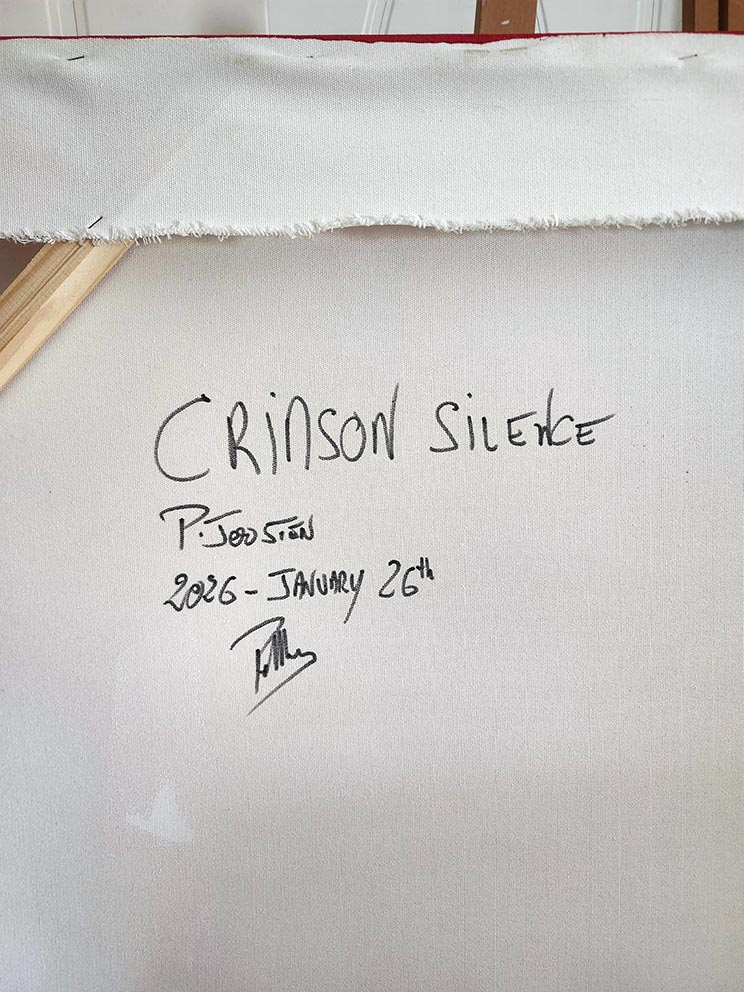 CRIMSON SILENCE
P. JOOSTEN
2026 - JANUARY 26th